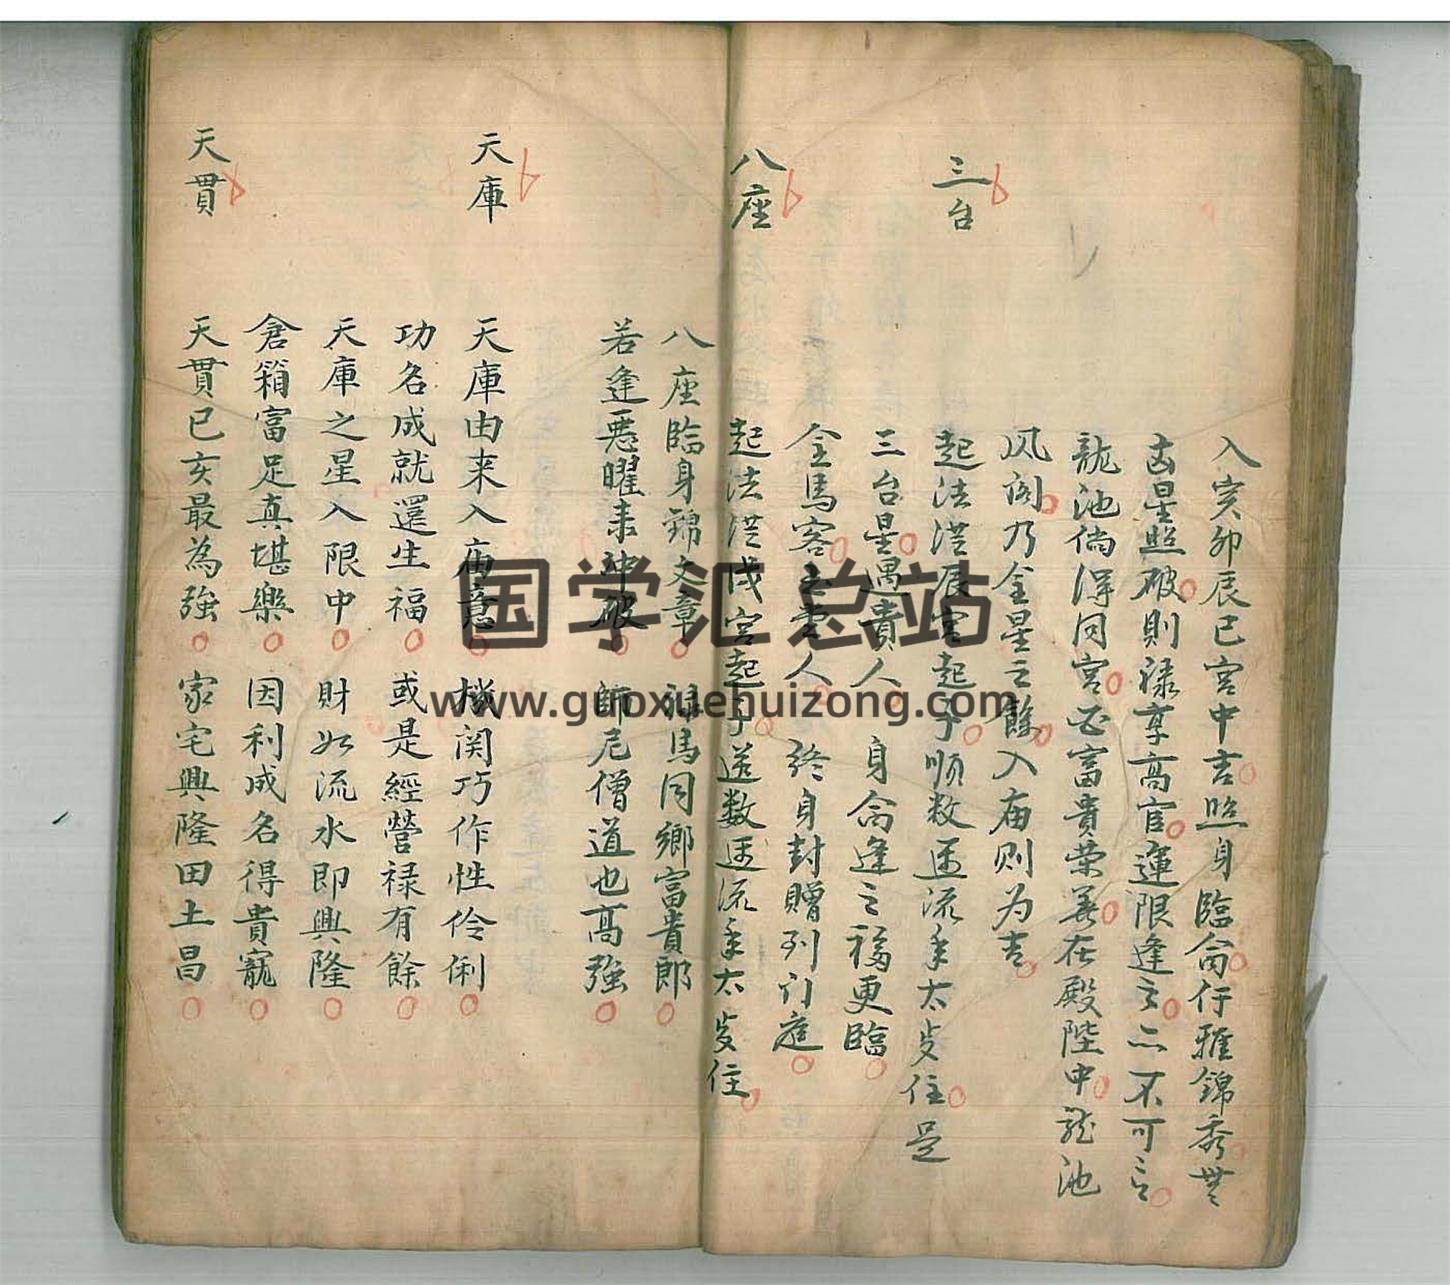 入亥卯辰巳宮中吉照身臨命仔雅錦秀無
凶星照破則禄享高官運限逢之亦不可言
龍池倘得同宮正富貴荣華在殿陛中龍池
风阁乃金星之餘入庙则为吉
三台
起法從辰宮起子順数逐流年太岁住是
三台星遇貴人身命逢之福更臨
金馬客之貴人終身封贈列门庭
八座
起法從戌宮起子逆数逐流年太岁住
八座臨身錦文章禄馬同鄉富貴郎
若逢惡曜来冲破師尼僧道也高強
天庫
天庫由来入庙意機関巧作性伶俐
功名成就還生福或是經營禄有餘
天庫之星入限中財如流水即興隆
倉箱富足真堪樂因利成名得貴寵
天貫
天貫已亥最為強家宅興隆田土昌
国学汇总站
www.guoxuehuizong.com